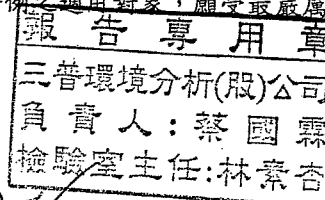 例之適用對象，願受最嚴厲
報告專用章
三普環境分析(股)公司
負責人：蔡國霖
檢驗室主任：林素杏